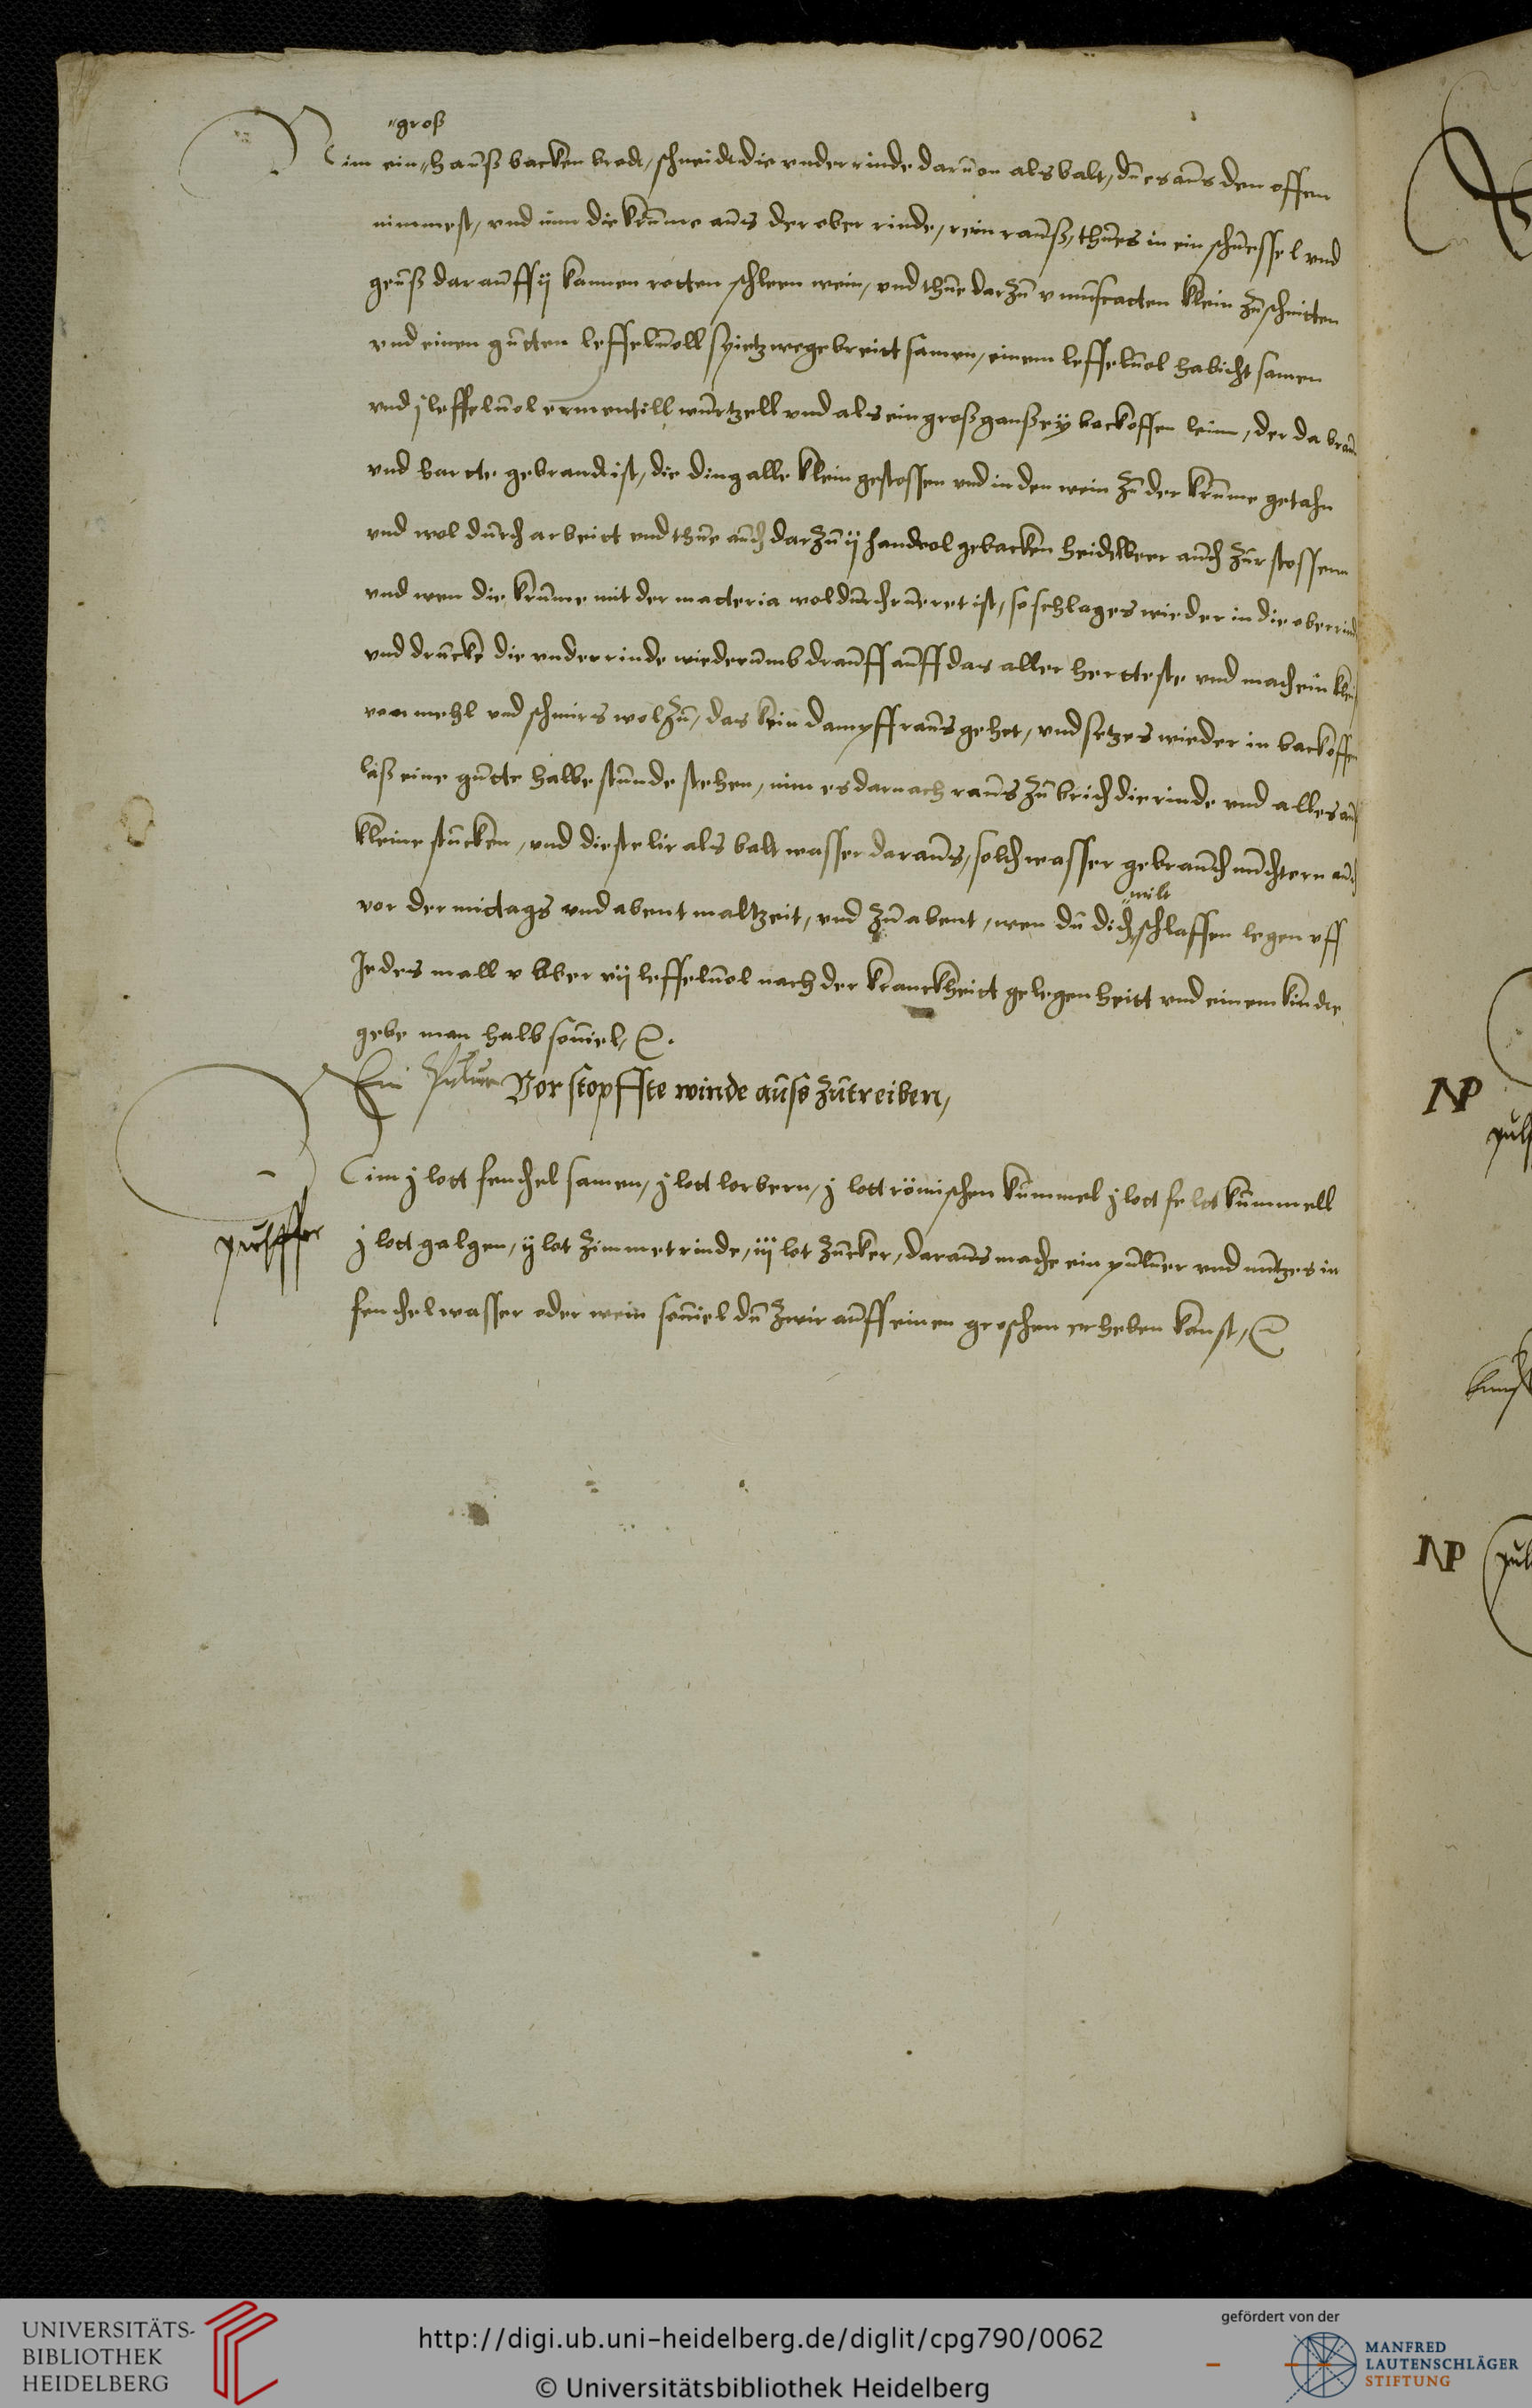 "groß
Nim ein "haůß backen brodt, schneidt die vnder rinde darůon alsbalt, dů es aůs den offen
nimmest, vnd nim die krůme aůs der ober rinde, rein raůß, thůe es in ein schůessel vnd
geůß daraůff ij kannen rotten schleen wein, vnd thůe darzů v můscatten klein zůschnitten
vnd einen gůtten leffelůoll spietz wegebreitt samen, einem leffelůol habicht samen
vnd j leffelůol ermentill wůrtzell vnd als ein groß ganß ey backoffen leim, der da braů
vnd hartte gebrandt ist, die ding alle klein gestossen vnd in den wein zů der krůme gethan
vnd wol důrch arbeitt vnd thůe aůch darzů ij handvol gebacken heidelbeer aůch zůrstossenn
vnd wen die krůme mit der matteria wol důrchrůeret ist, so schlag es wieder in die ober rind
vnd drůcke die vnder rinde wiederůmb draůff aůff das aller hertteste vnd mach ein klei
von mehl vnd schmirs wol zů, das kein dampff raůs gehet, vnd setz es wieder in backoffen
laß eine gůtte halbe stůnde stehen, nim es darnach raůs zůbrich die rinde vnd alles aůf
kleine stůcken, vnd distelir als balt wasser daraůs, solch wasser gebraůch nůchtern aůch
"wilt
vor der mittags vnd abent maltzeit, vnd zů abent, wen dů dich "schlaffen legen vff
Jedes mall v ader vij leffelůol nach der kranckheitt gelegenheitt vnd einem kindte
gebe man halb soůiel, ꝛc.
Ein Pulver Vorstopffte winde aůß zůtreiben,
Nim j lott fenchel samen, j lott lorbern, j lott römischen kůmmel j lott feltt kůmmell
pulffer
j lott galgen, ij lot zimmet rinde, iij lot zůcker, daraůs mache ein půlůer vnd nůtz es in
fenchel wasser oder wein soůiel dů zwir aůff einen groschen erheben kanst, ꝛc
NP
pulf
NP
pul
UNIVERSITÄTS-
BIBLIOTHEK
HEIDELBERG
http://digi.ub.uni-heidelberg.de/diglit/cpg790/0062
© Universitätsbibliothek Heidelberg
gefördert von der
MANFRED
LAUTENSCHLÄGER
STIFTUNG